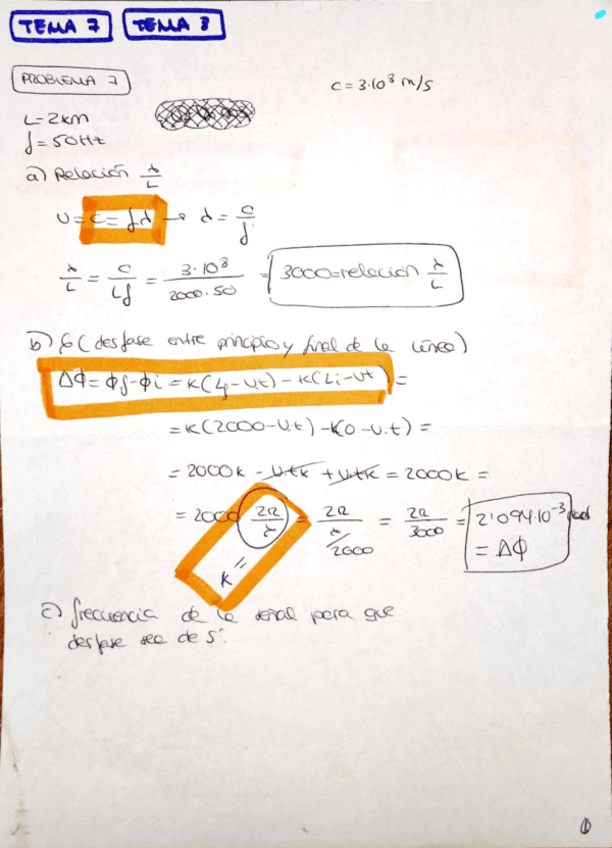 TEMA 7 TEMA 8
PROBLEMA 7
c = 3·10⁸ m/s
L=2km
f = 50Hz
a) Relación λ/L
v = c = fλ → λ = c/f
λ/L = c/Lf = 3·10⁸/2000·50 = 3000 = relación λ/L
b) δ (desfase entre principio y final de la línea)
Δϕ = ϕf - ϕi = K(Lf - vt) - K(Li - vt) =
= K(2000 - v.t) - K(0 - v.t) =
= 2000K - vtK + vtK = 2000K =
= 2000 2π/λ = 2π/λ/2000 = 2π/3000 = 2'094·10⁻³ rad
K =
= Δϕ
c) frecuencia de la señal para que
desfase sea de 5°.
1